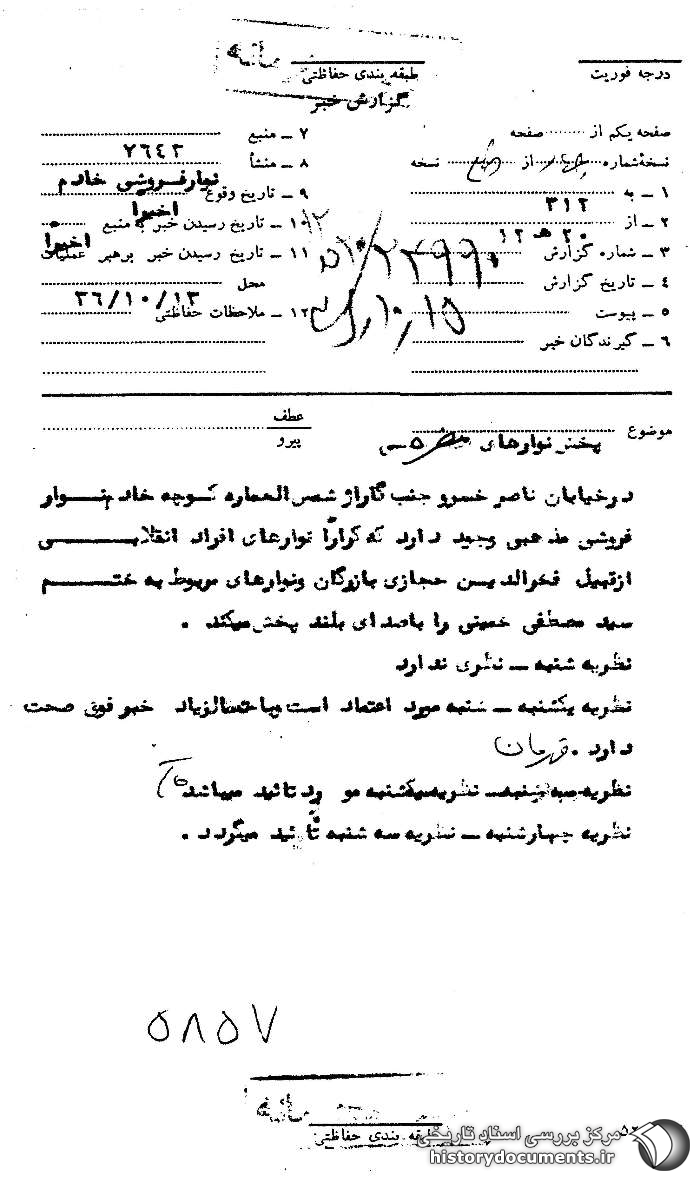 طبقه بندی حفاظتی
درجه فوریت
گزارش خبر
صفحه یکم از صفحه
نسخه شماره از نسخه
۱ ــ به ۳۱۲
۲ ــ از ۲۰ هـ ۱۲
۳ ــ شماره گزارش
۴ ــ تاریخ گزارش
۵ ــ پیوست
۶ ــ گیرندگان خبر
۷ ــ منبع ۷۶۴۳
۸ ــ منشأ نوارفروشی خادم
۹ ــ تاریخ وقوع اخیرا
۱۰ ــ تاریخ رسیدن خبر به منبع اخیرا
۱۱ ــ تاریخ رسیدن خبر برهبر عملیات
محل ۳۶/۱۰/۱۳
۱۲ ــ ملاحظات حفاظتی
موضوع پخش نوارهای
عطف
پیرو
درخیابان ناصر خسرو جنب گاراژ شمس العماره کوچه خادم نوار
فروشی مذهبی وجود دارد که کراراً نوارهای افراد انقلابی
ازقبیل فخرالدین حجازی بازرگان ونوارهای مربوط به ختم
سید مصطفی خمینی را باصدای بلند پخش میکند .
نظریه شنبه ــ نظری ندارد
نظریه یکشنبه ــ شنبه مورد اعتماد است وباحتمال زیاد خبر فوق صحت
دارد . قهرمان
نظریه سه شنبه ــ نظریه یکشنبه مورد تائید میباشد
نظریه چهارشنبه ــ نظریه سه شنبه تائید میگردد .
۵۸۵۷
طبقه بندی حفاظتی
مرکز بررسی اسناد تاریخی
historydocuments.ir